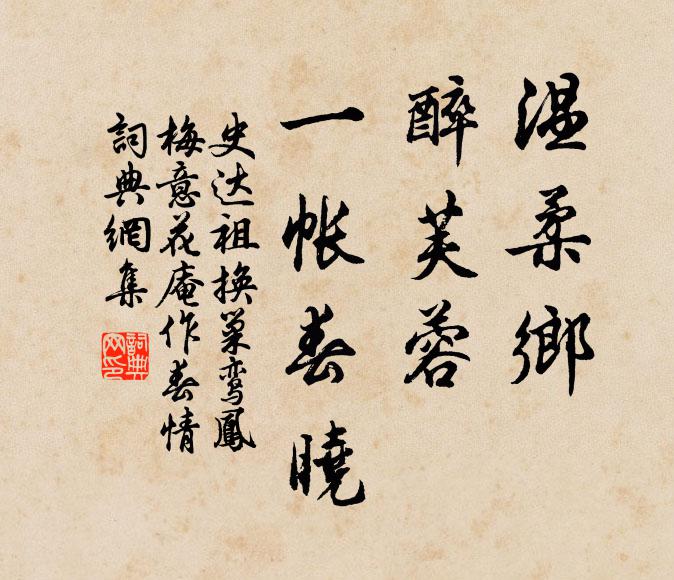 温柔鄉
醉芙蓉
一帐春曉
史达祖換巢鸾鳳
梅意花庵作春情
詞典網集
詞典网印